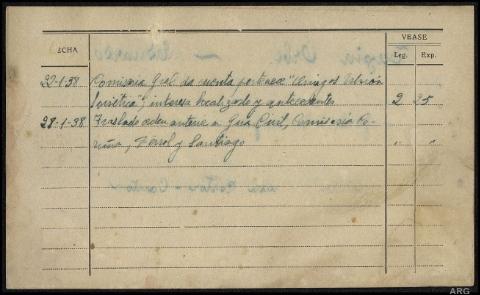 VEASE
FECHA Leg. Exp.
22-1-38 Comisaria Gral. da cuenta pertenece "Amigos Unión
Sovietica", interesa localizarle y antecedentes 2 25
28-1-38 Traslado anterior a Gua Civil, Comisaria Co-
ruña, Ferrol y Santiago " "
ARG